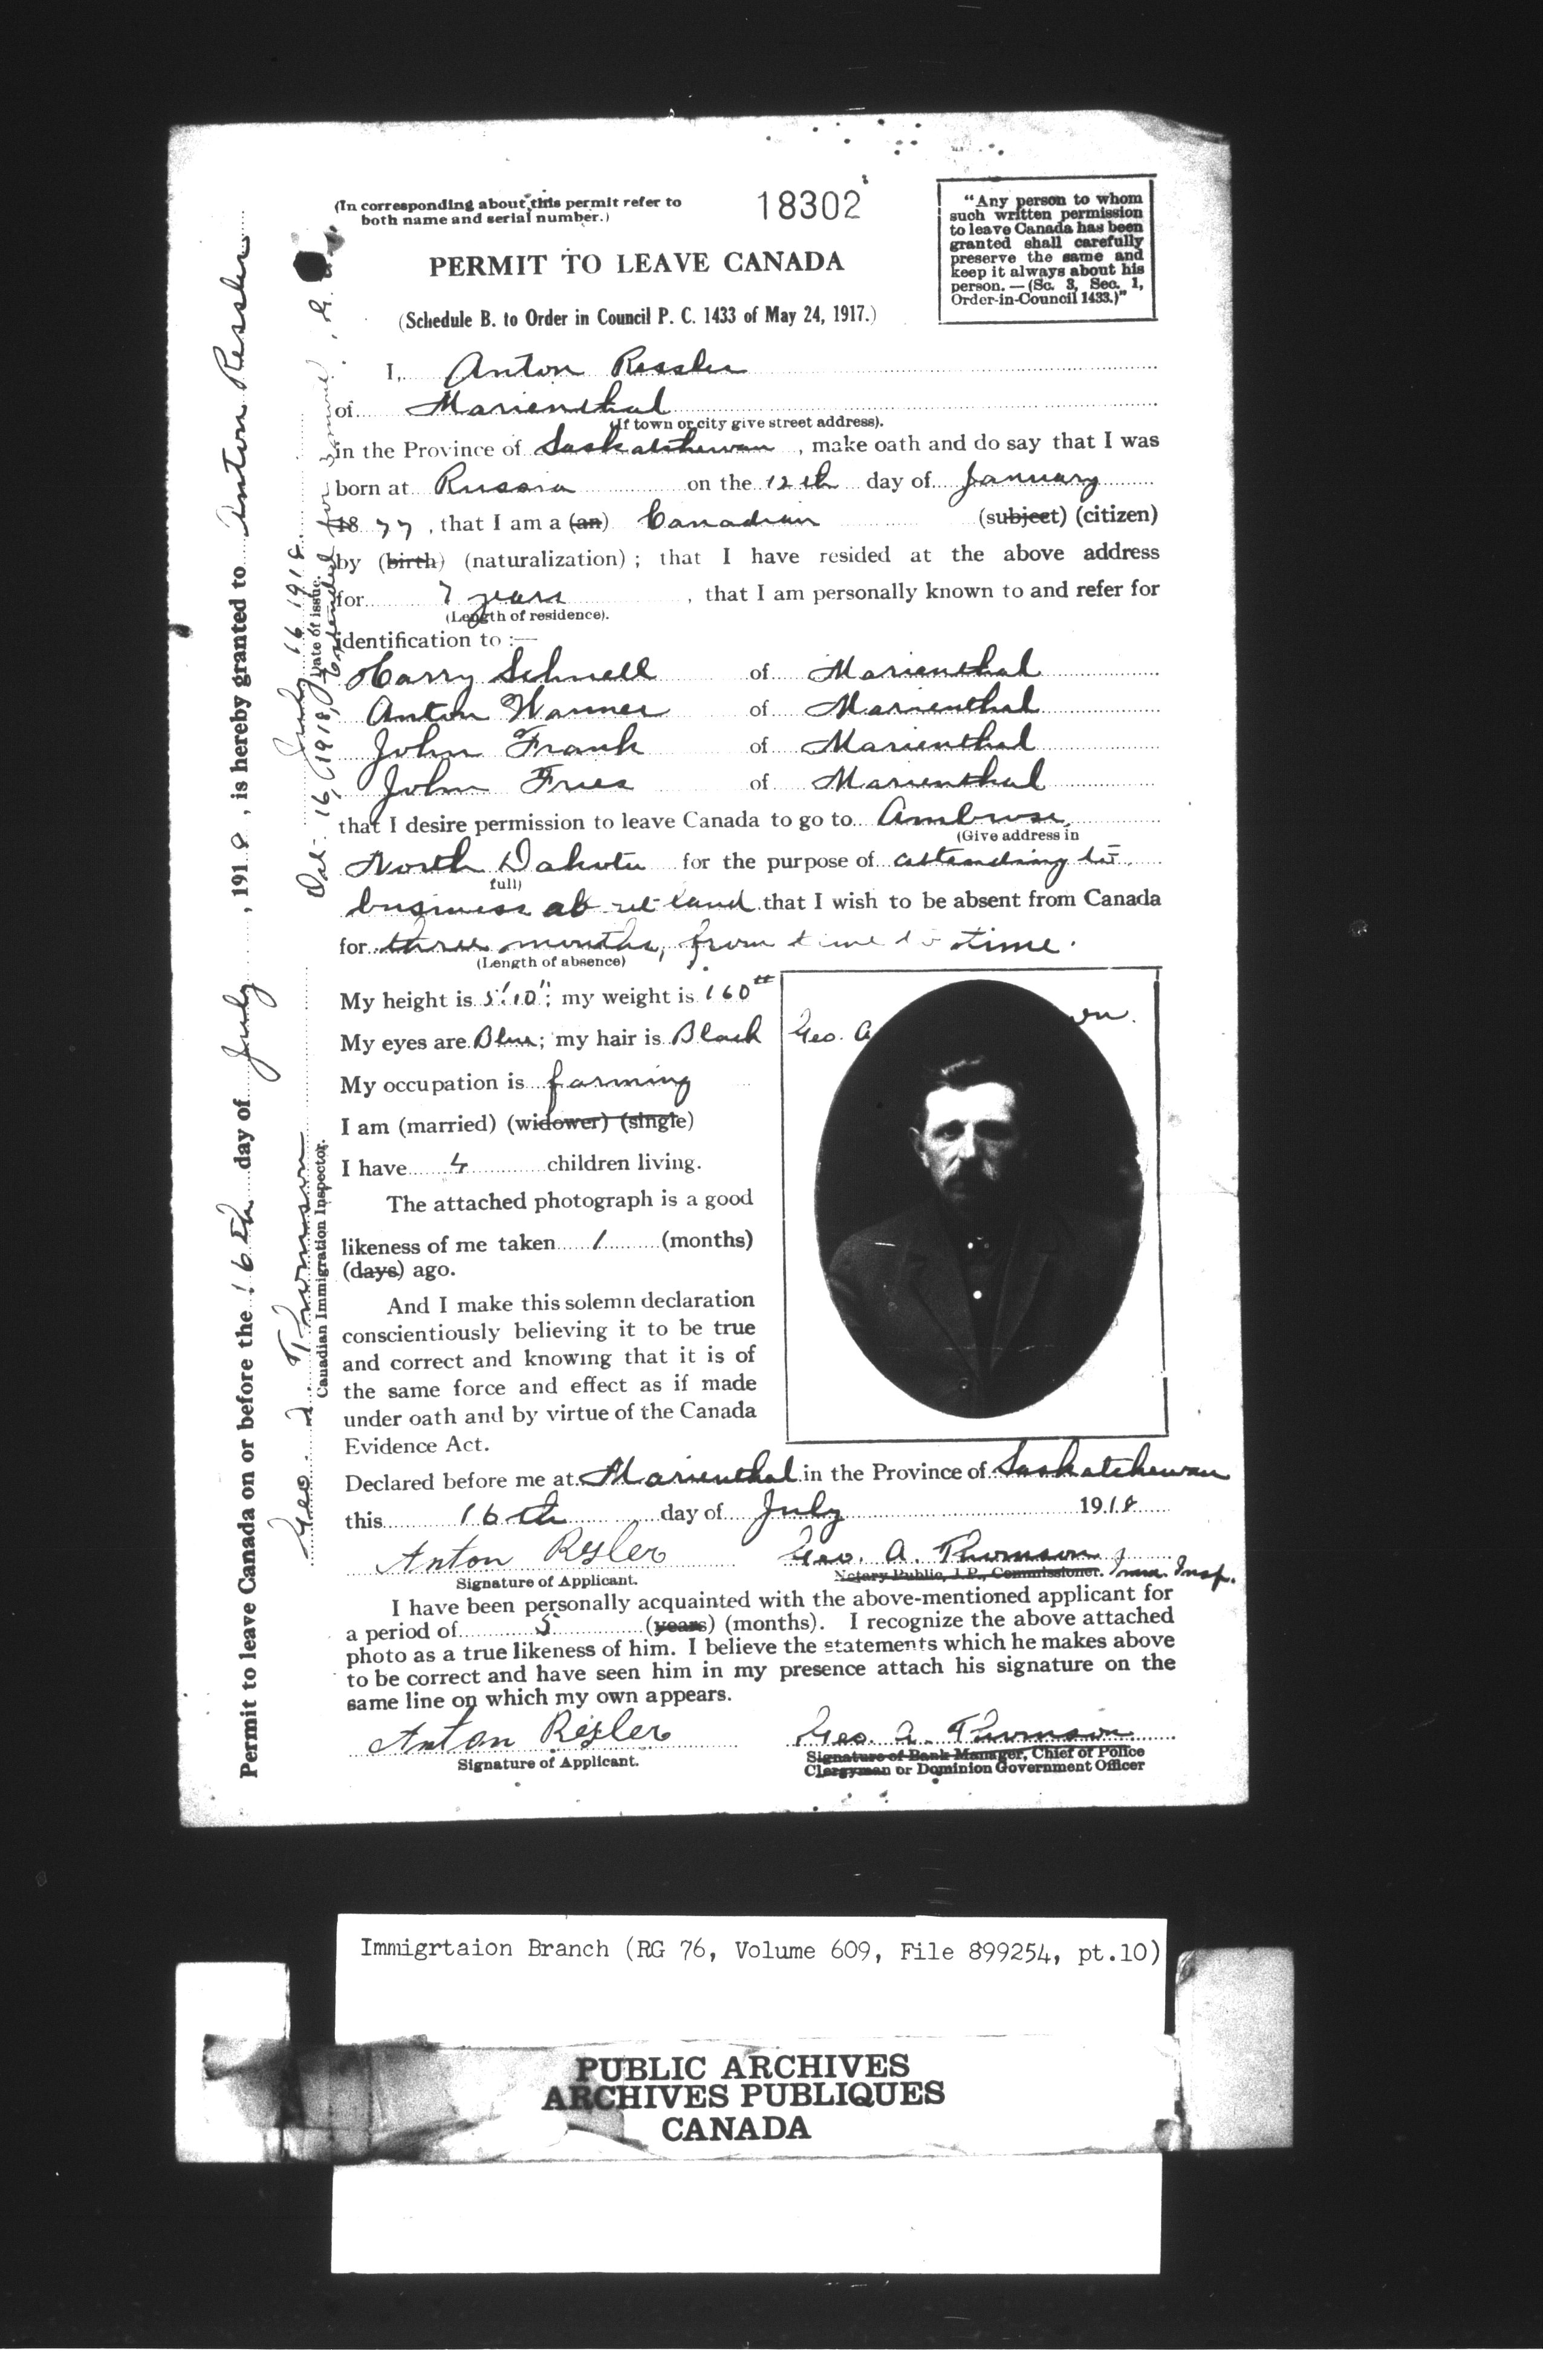 (In corresponding about this permit refer to
both name and serial number.)
18302
"Any person to whom
such written permission
to leave Canada has been
granted shall carefully
preserve the same and
keep it always about his
person. — (Sc. 3, Sec. 1,
Order-in-Council 1433.)"
PERMIT TO LEAVE CANADA
(Schedule B. to Order in Council P. C. 1433 of May 24, 1917.)
I, Anton Ressler
of Marienthal
(If town or city give street address).
in the Province of Saskatchewan, make oath and do say that I was
born at Russia on the 12th day of January
1877, that I am a (an) Canadian (subject) (citizen)
by (birth) (naturalization); that I have resided at the above address
for 7 years, that I am personally known to and refer for
(Length of residence).
identification to :—
Harry Schnell of Marienthal
Anton Wanner of Marienthal
John Frank of Marienthal
John Fries of Marienthal
that I desire permission to leave Canada to go to Ambrose,
(Give address in
North Dakota for the purpose of attending to
full)
business ab re land that I wish to be absent from Canada
for three months, from time to time.
(Length of absence)
My height is 5' 10"; my weight is 160
My eyes are Blue; my hair is Black
My occupation is farming
I am (married) (widower) (single)
I have 4 children living.
The attached photograph is a good
likeness of me taken 1 (months)
(days) ago.
And I make this solemn declaration
conscientiously believing it to be true
and correct and knowing that it is of
the same force and effect as if made
under oath and by virtue of the Canada
Evidence Act.
Geo. A
wn.
Declared before me at Marienthal in the Province of Saskatchewan
this 16th day of July 1918
Anton Resler Geo. A. Thomson
Signature of Applicant. Notary Public, J.P., Commissioner. Imm. Insp.
I have been personally acquainted with the above-mentioned applicant for
a period of 5 (years) (months). I recognize the above attached
photo as a true likeness of him. I believe the statements which he makes above
to be correct and have seen him in my presence attach his signature on the
same line on which my own appears.
Anton Resler Geo. A. Thomson
Signature of Applicant. Signature of Bank Manager, Chief of Police
Clergyman or Dominion Government Officer
Permit to leave Canada on or before the 16th day of July, 1918, is hereby granted to Anton Ressler
Geo. A. Thomson July 16 1918
Canadian Immigration Inspector. Date of issue.
Oct. 16, 1918, Extended for 3
Immigrtaion Branch (RG 76, Volume 609, File 899254, pt.10)
PUBLIC ARCHIVES
ARCHIVES PUBLIQUES
CANADA